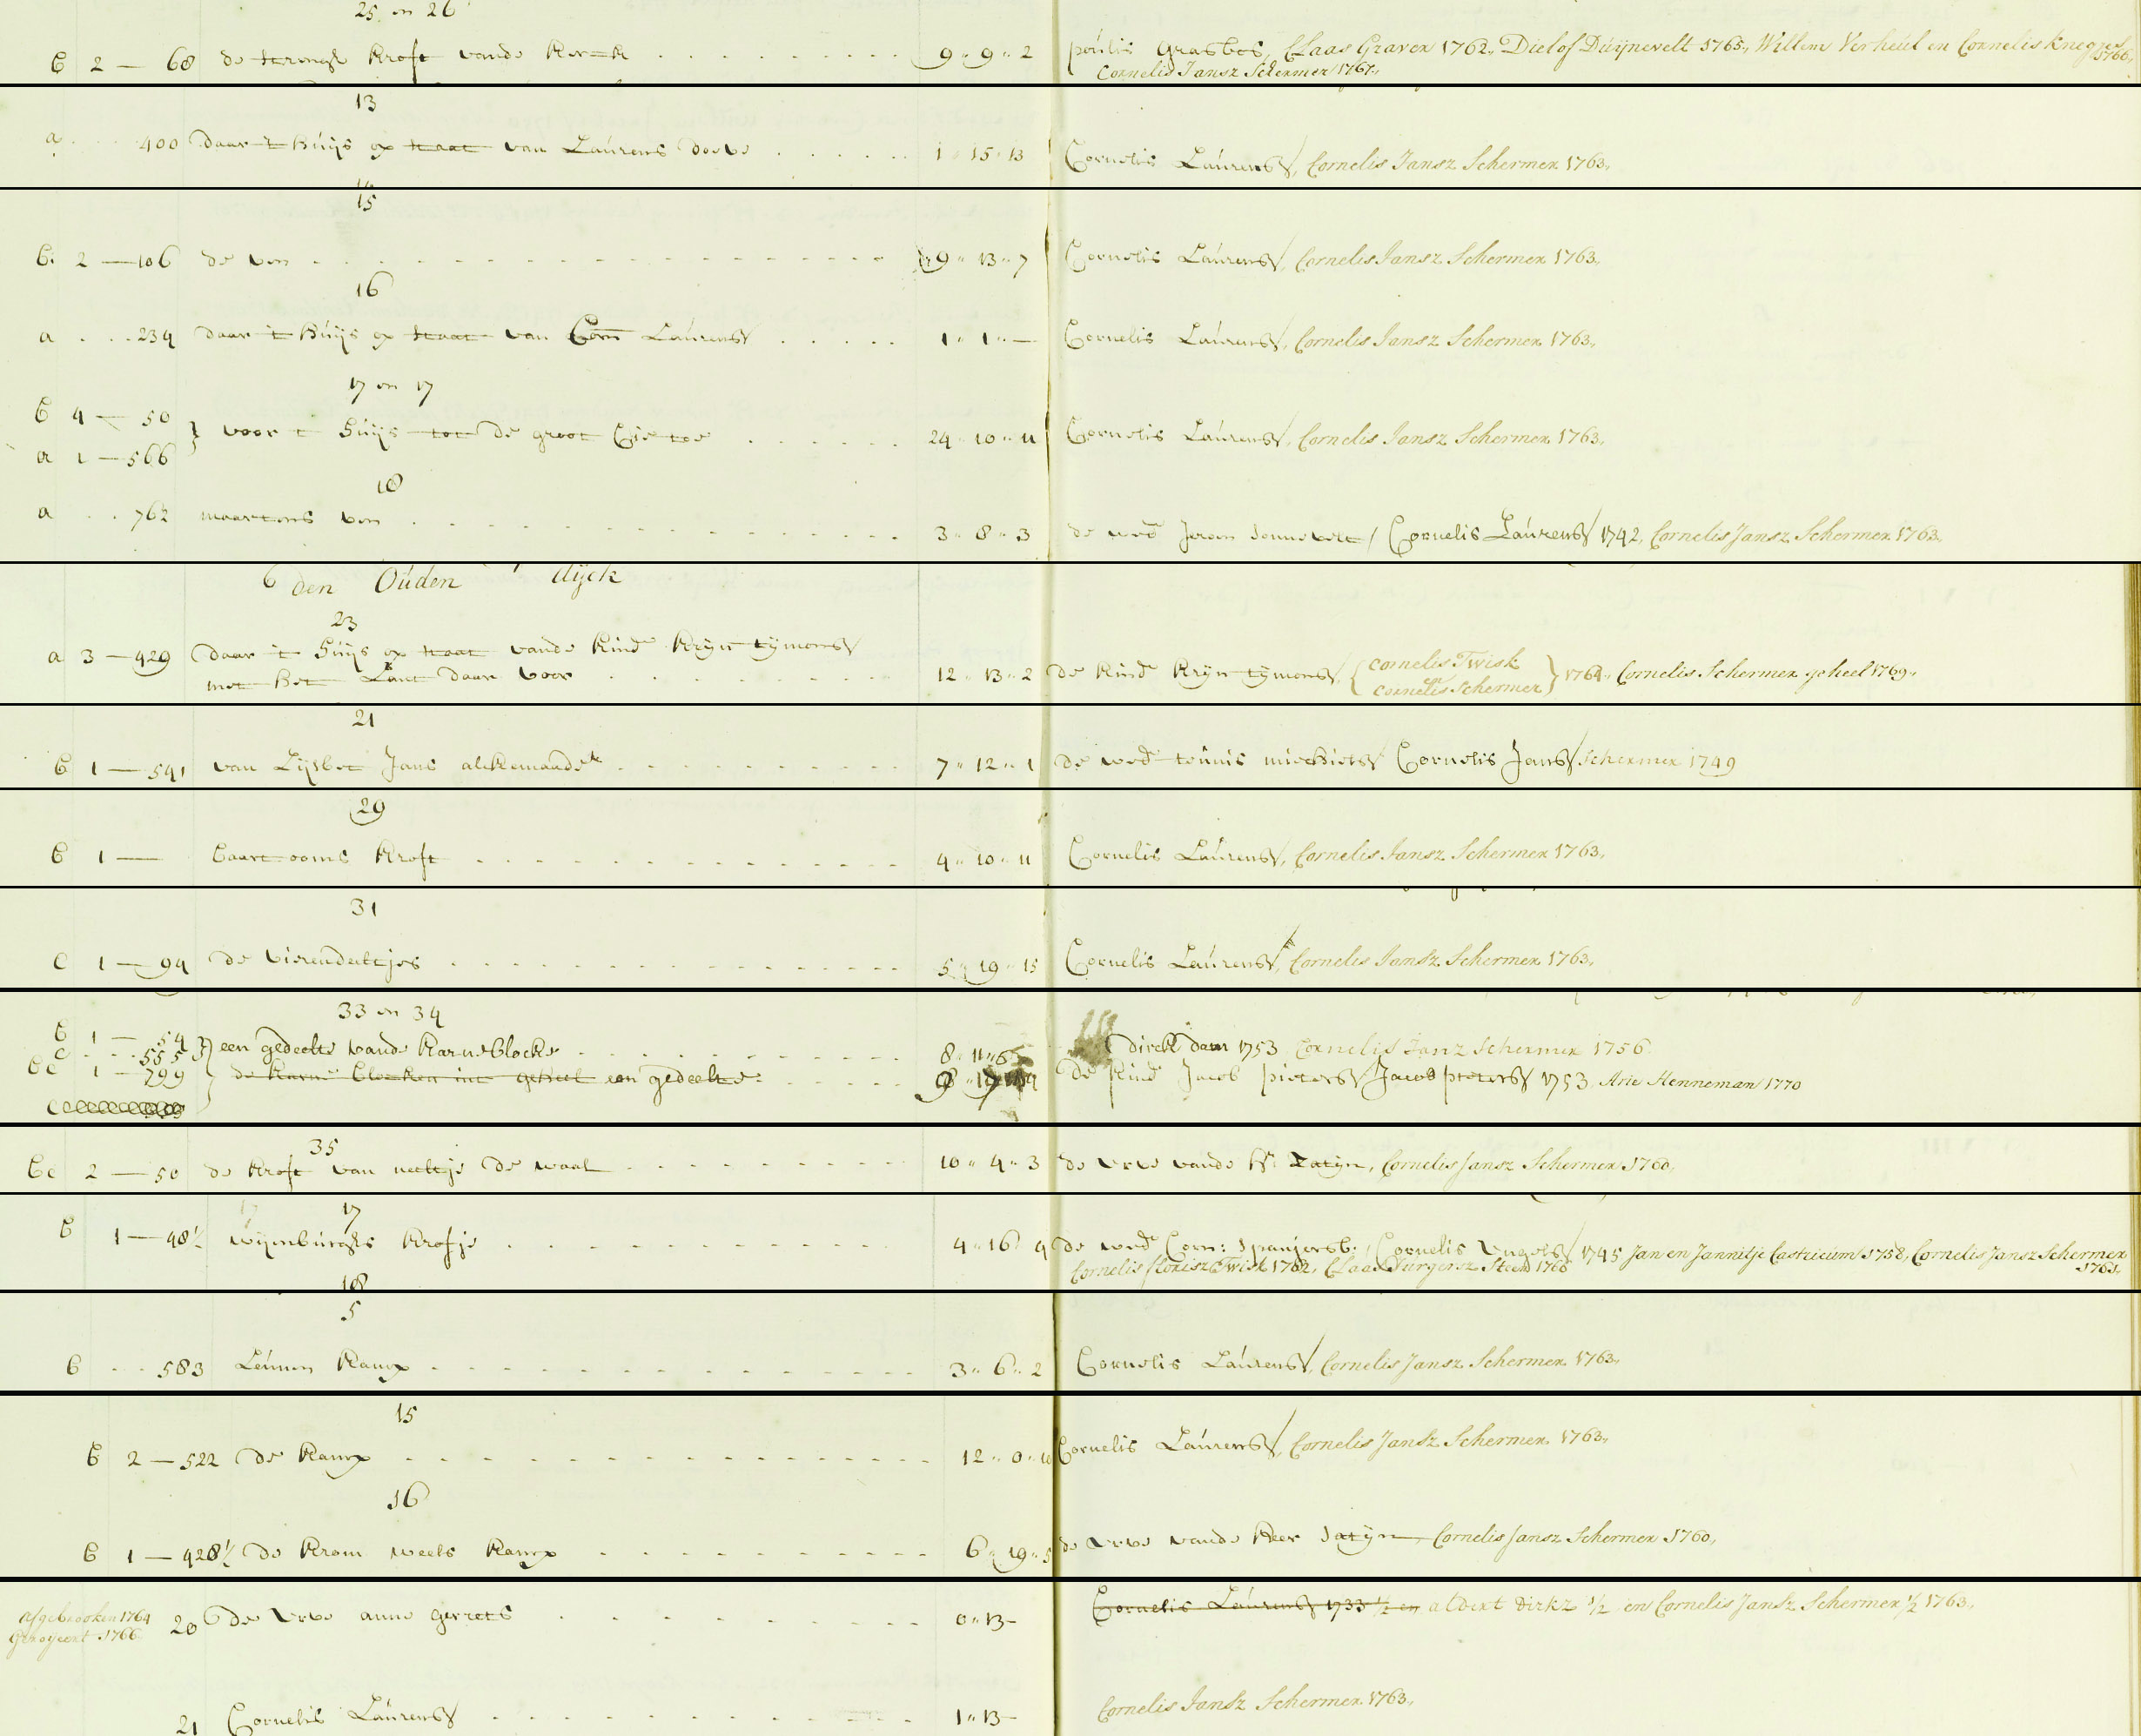 25 en 26
B 2 — 68 de strengh kroft vande kerck 9 " 9 " 2 poulis Grasbos, Claas Graver 1762, Dielof Duijnevelt 1765, Willem Verheul en Cornelis Knegjes 1766,
Cornelis Jansz Schermer 1767,
13
a 400 daar 't huijs op staat van Laurens dove 1 " 15 " 13 Cornelis Laurensz, Cornelis Jansz Schermer 1763,
15
B. 2 — 106 de ven 9 " 13 " 7 Cornelis Laurensz, Cornelis Jansz Schermer 1763,
16
a 234 daar 't huijs op staat van Corn Laurensz 1 " 1 " — Cornelis Laurensz, Cornelis Jansz Schermer 1763,
17 en 17
B 4 — 50
a 1 — 566 } voor t huijs tot de groot 24 " 10 " 11 Cornelis Laurensz, Cornelis Jansz Schermer 1763,
18
a 762 maartens ven 3 " 8 " 3 de wed Jeroen / Cornelis Laurensz 1742, Cornelis Jansz Schermer 1763,
den Ouden dijck
23
a 3 — 429 daar 't huijs op staat vande kind krijn tijmonsz
met het Lant daar voor 12 " 13 " 2 de kind krijn tijmonsz, { Cornelis Twisk en Cornelis Schermer } 1764, Cornelis Schermer geheel 1769,
21
B 1 — 541 van Lijsbet Jans alkemaade 7 " 12 " 1 de wed teunis michielsz Cornelis Jansz Schermer 1749
29
B 1 — baart ooms kroft 4 " 10 " 11 Cornelis Laurensz, Cornelis Jansz Schermer 1763,
31
C 1 — 94 de vierendeeltjes 5 " 19 " 15 Cornelis Laurensz, Cornelis Jansz Schermer 1763,
33 en 34
B 1 — 54
C 555 } een gedeelte vande karneblocke 8 " 11 " 6 dirck dam 1753 Cornelis Janz Schermer 1756
BC 1 — 299 de karne blocken int geheel een gedeelte de kind Jacob pietersz Jacob pietersz 1753, Arie Henneman 1770
35
Bc 2 — 50 de kroft van neeltje de waal 10 " 4 " 3 de erve vande hr. Satijn, Cornelis Jansz Schermer 1760,
17
B 1 — 48½ wijnburghs krofje 4 " 16 " 4 de wed Corn: Spanjersb:, Cornelis Engelsz 1745 Jan en Jannitje Castricum 1758, Cornelis Jansz Schermer 1761,
Cornelis Florisz Twisk 1762, Claas Jurgensz Steen 1766
18
5
B 583 Leunen kamp 3 " 6 " 2 Cornelis Laurensz, Cornelis Jansz Schermer 1763,
15
B 2 — 522 de kamp 12 " 0 " 10 Cornelis Laurensz, Cornelis Jansz Schermer 1763,
16
B 1 — 428½ de krom weels kamp 6 " 19 " 5 de erve vande Heer Satijn, Cornelis Jansz Schermer 1760,
afgebrooken 1764
Geroyeert 1766 20 de erve anne gerrets 0 " 13 — Cornelis Laurensz 1733 ½ en albert dirkz ½ en Cornelis Jansz Schermer ½ 1763,
21 Cornelis Laurensz 1 " 13 — Cornelis Jansz Schermer 1763,